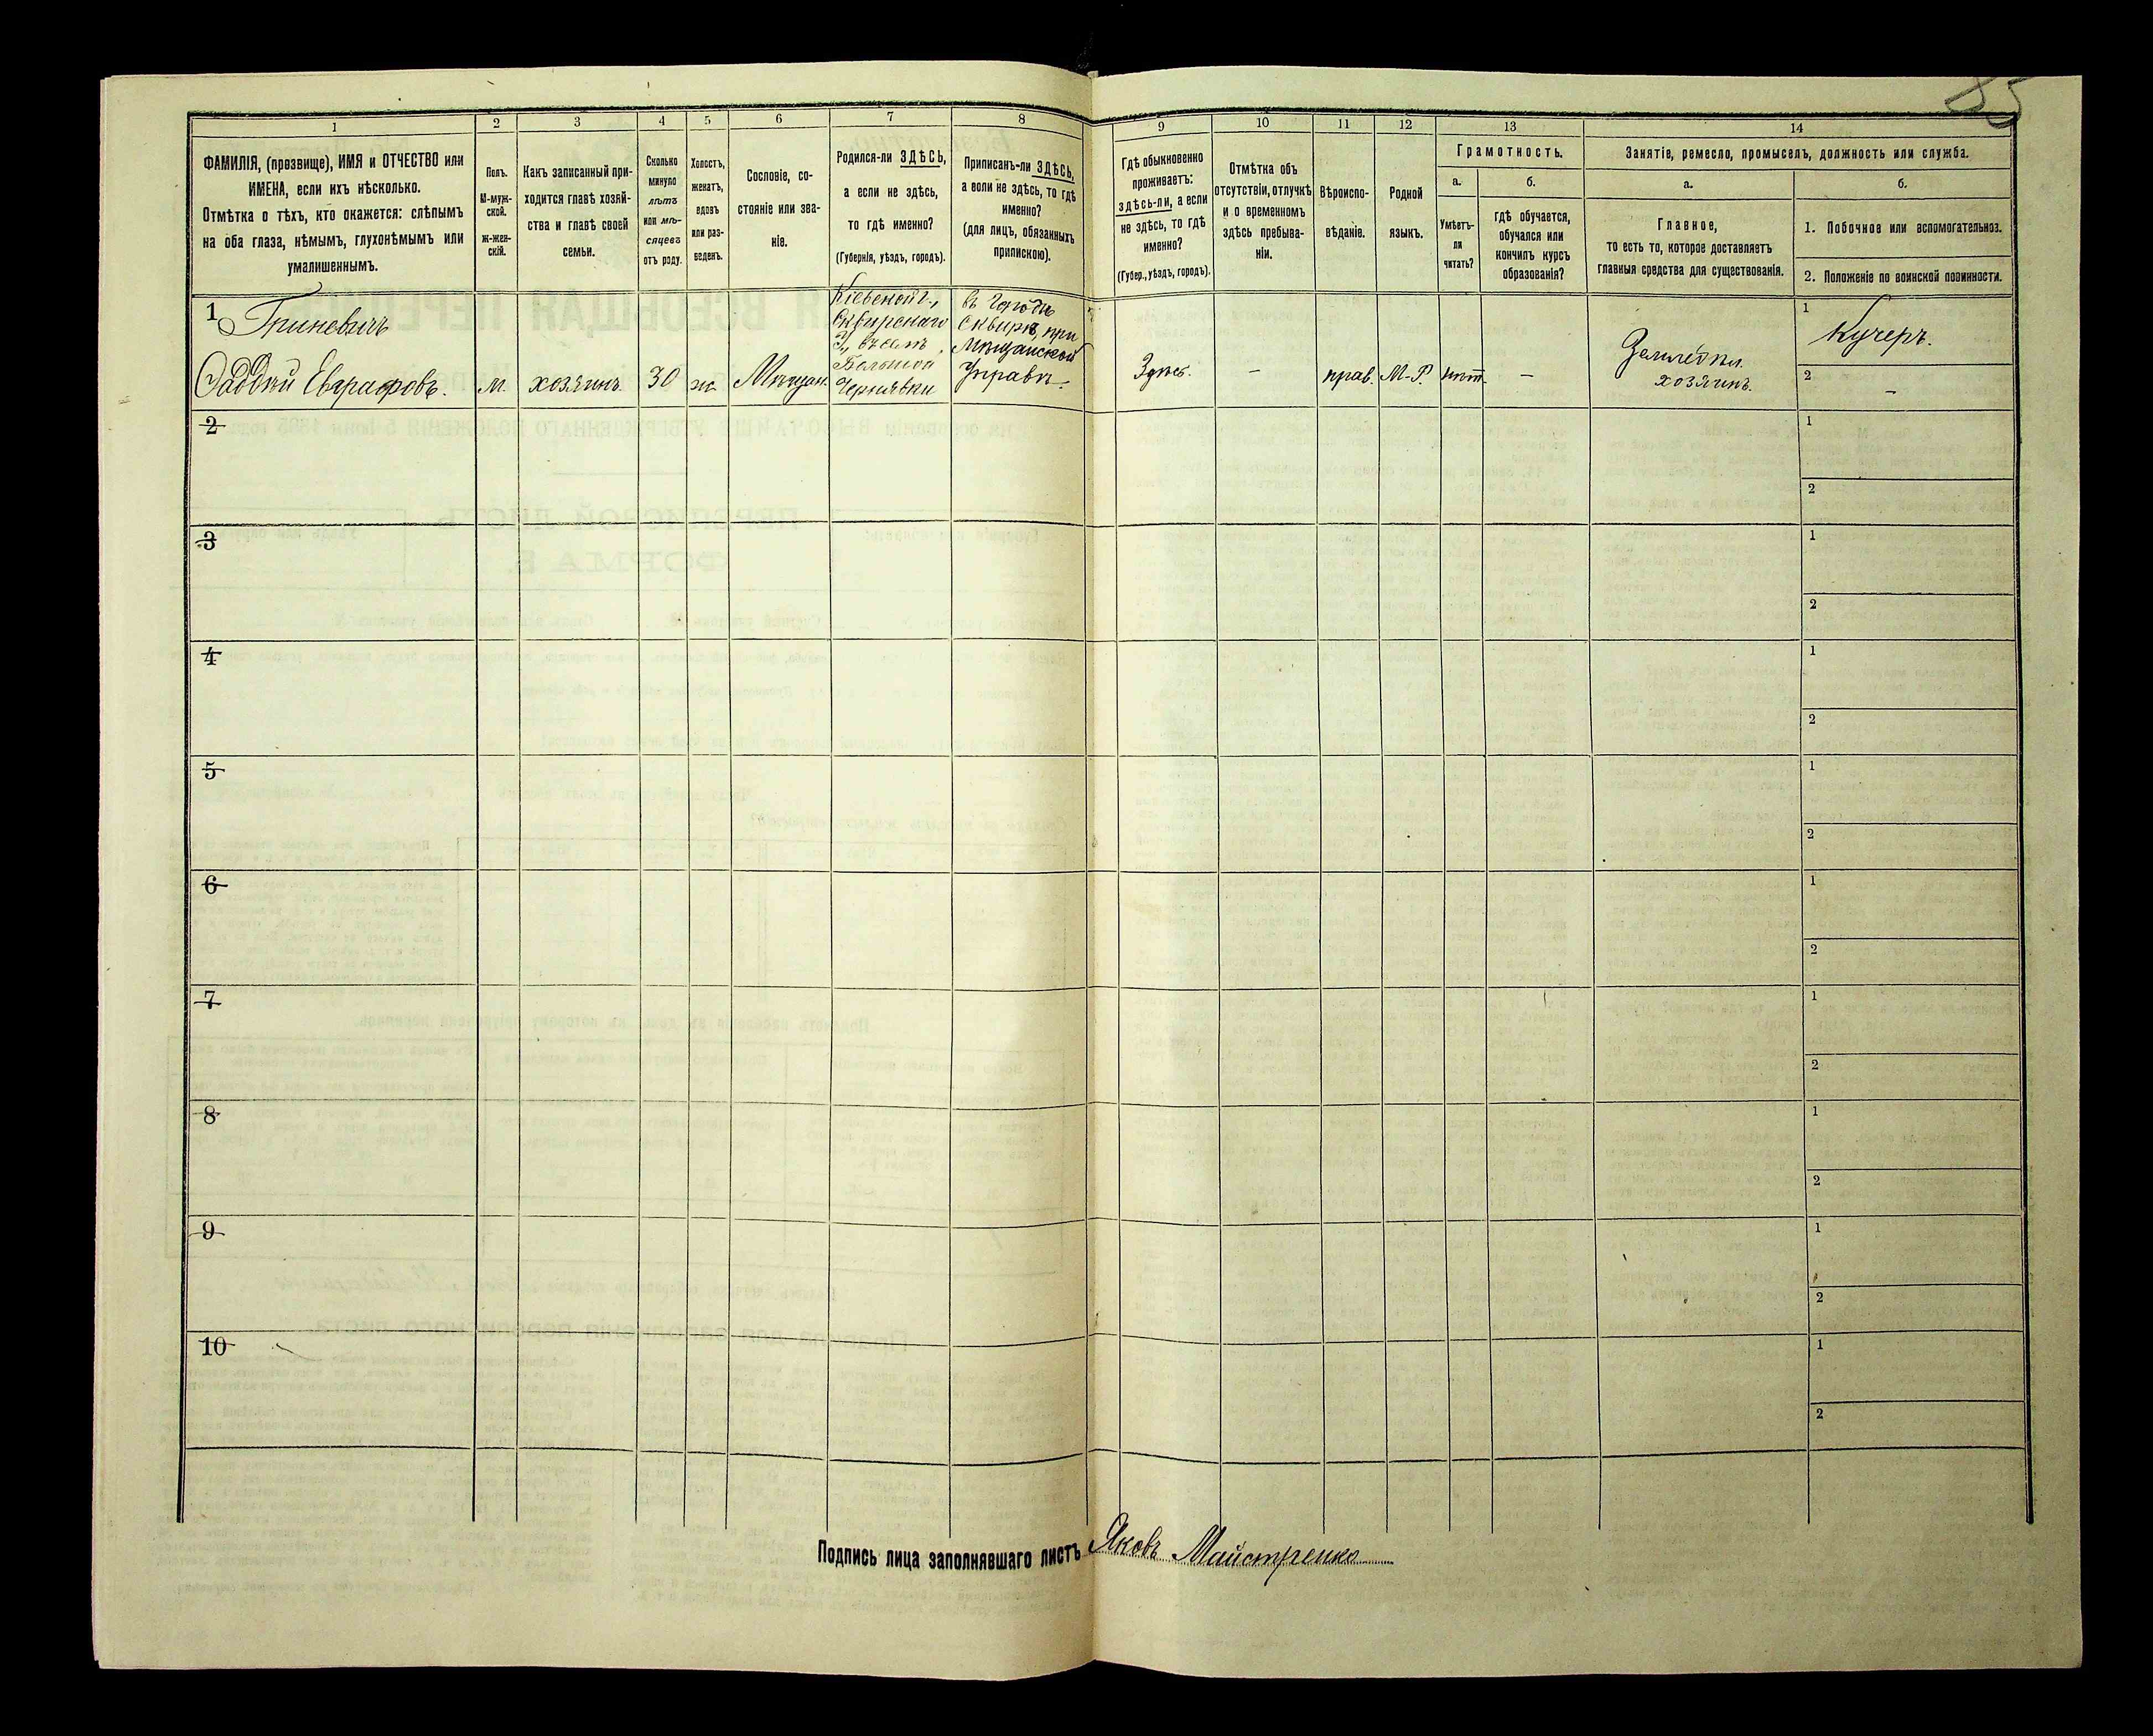 85
1
2
3
4
5
6
7
8
9
10
11
12
13
14
ФАМИЛІЯ, (прозвище), ИМЯ и ОТЧЕСТВО или
ИМЕНА, если ихъ нѣсколько.
Отмѣтка о тѣхъ, кто окажется: слѣпымъ
на оба глаза, нѣмымъ, глухонѣмымъ или
умалишеннымъ.
Полъ.
М-муж-
ской.
ж-жен-
скій.
Какъ записанный при-
ходится главѣ хозяй-
ства и главѣ своей
семьи.
Сколько
минуло
лѣтъ
или мѣ-
сяцевъ
отъ роду.
Холостъ,
женатъ,
вдовъ
или раз-
веденъ.
Сословіе, со-
стояніе или зва-
ніе.
Родился-ли ЗДѢСЬ,
а если не здѣсь,
то гдѣ именно?
(Губернія, уѣздъ, городъ).
Приписанъ-ли ЗДѢСЬ,
а если не здѣсь, то гдѣ
именно?
(для лицъ, обязанныхъ
припискою).
Гдѣ обыкновенно
проживаетъ:
здѣсь-ли, а если
не здѣсь, то гдѣ
именно?
(Губер., уѣздъ, городъ).
Отмѣтка объ
отсутствіи, отлучкѣ
и о временномъ
здѣсь пребыва-
ніи.
Вѣроиспо-
вѣданіе.
Родной
языкъ.
Грамотность.
а.
Умѣетъ-
ли
читать?
б.
гдѣ обучается,
обучался или
кончилъ курсъ
образованія?
Занятіе, ремесло, промыселъ, должность или служба.
а.
Главное,
то есть то, которое доставляетъ
главныя средства для существованія.
б.
1. Побочное или вспомогательное.
2. Положеніе по воинской повинности.
1 Гриневичъ
Фаддей Евграфовъ.
м.
хозяинъ
30
ж.
Мѣщан.
Кіевской г.,
Сквирскаго
Большой
Чернявки
въ городѣ
Сквирѣ, при
Мѣщанской
Управѣ
Здѣсь.
–
прав.
М-Р.
нѣт.
–
хозяинъ.
1
Кучеръ.
2
–
2
1
2
3
1
2
4
1
2
5
1
2
6
1
2
7
1
2
8
1
2
9
1
2
10
1
2
Подпись лица заполнявшаго листъ Яковъ Майстренко